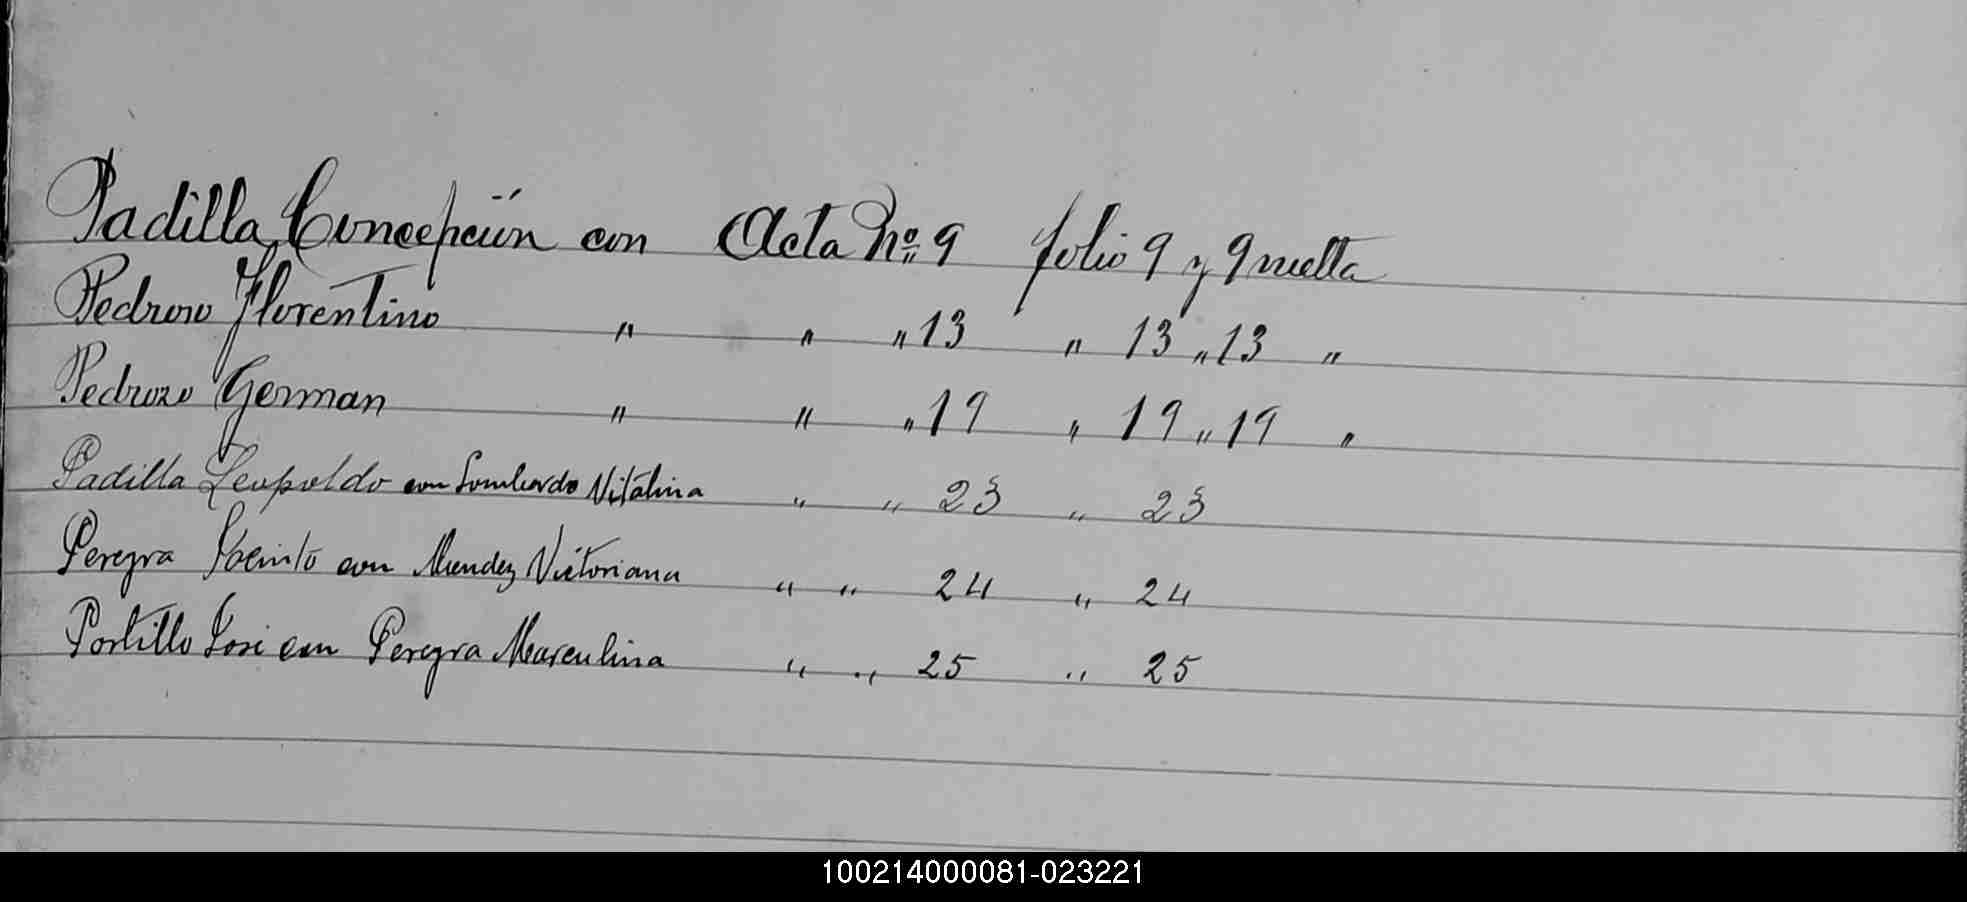 Padilla, Concepción con Acta Nº 9 folio 9 y 9 vuelta
Pedrozo Florentino " " " 13 " 13 " 13 "
Pedrozo German " " " 19 " 19 " 19 "
Padilla Leopoldo con Lombardo Vitalina " " 23 " 23
Pereyra Jacinto con Mendez Victoriana " " 24 " 24
Portillo José con Pereyra Marculina " " 25 " 25
100214000081-023221